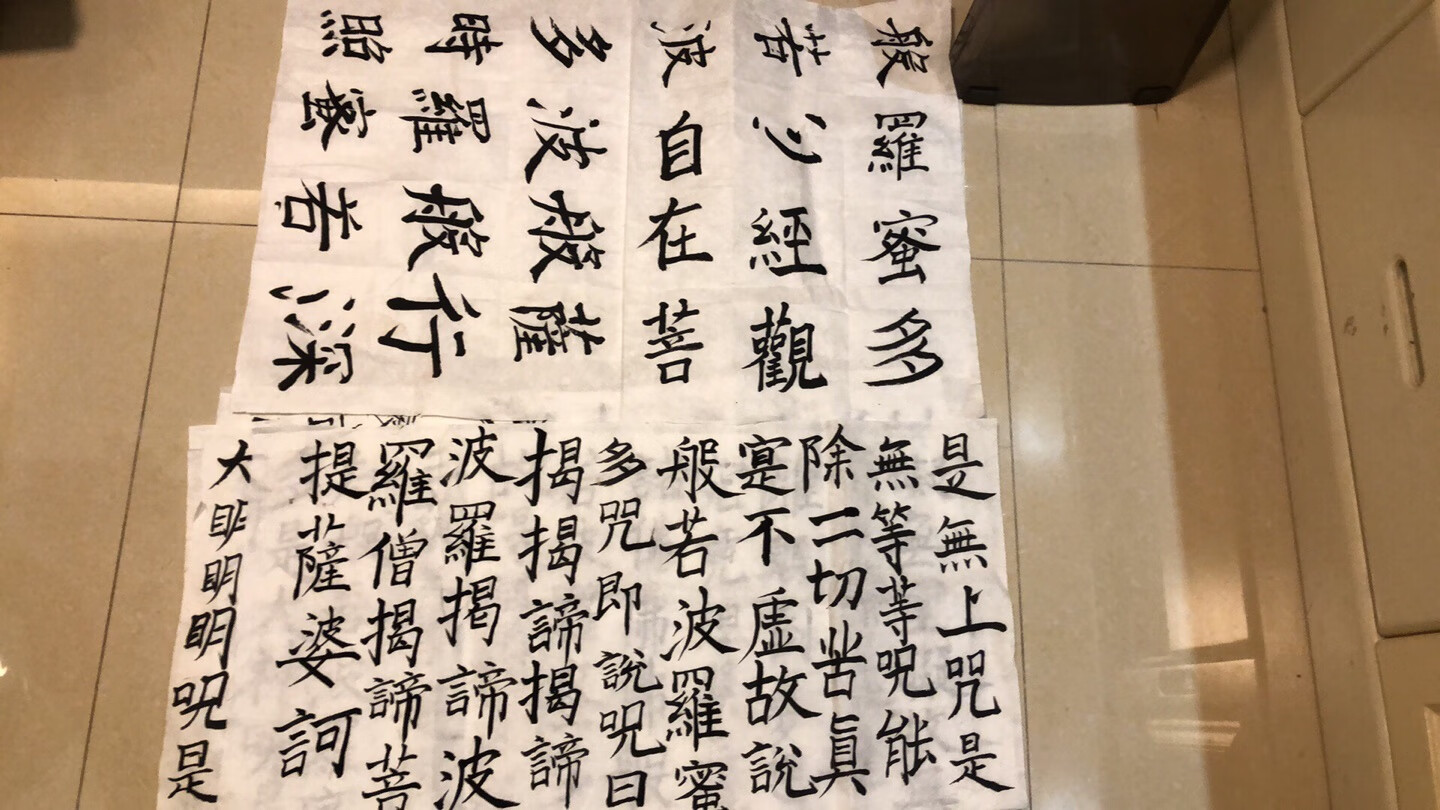 般羅蜜多
若心經觀
波自在菩
多波般薩
時羅般行
照蜜若深
是無上咒是
無等等呪能
除二切苦真
寔不虛故說
般若波羅蜜
多咒即說呪曰
揭揭諦揭諦
波羅揭諦波
羅僧揭諦菩
提薩婆訶
大明明呪是